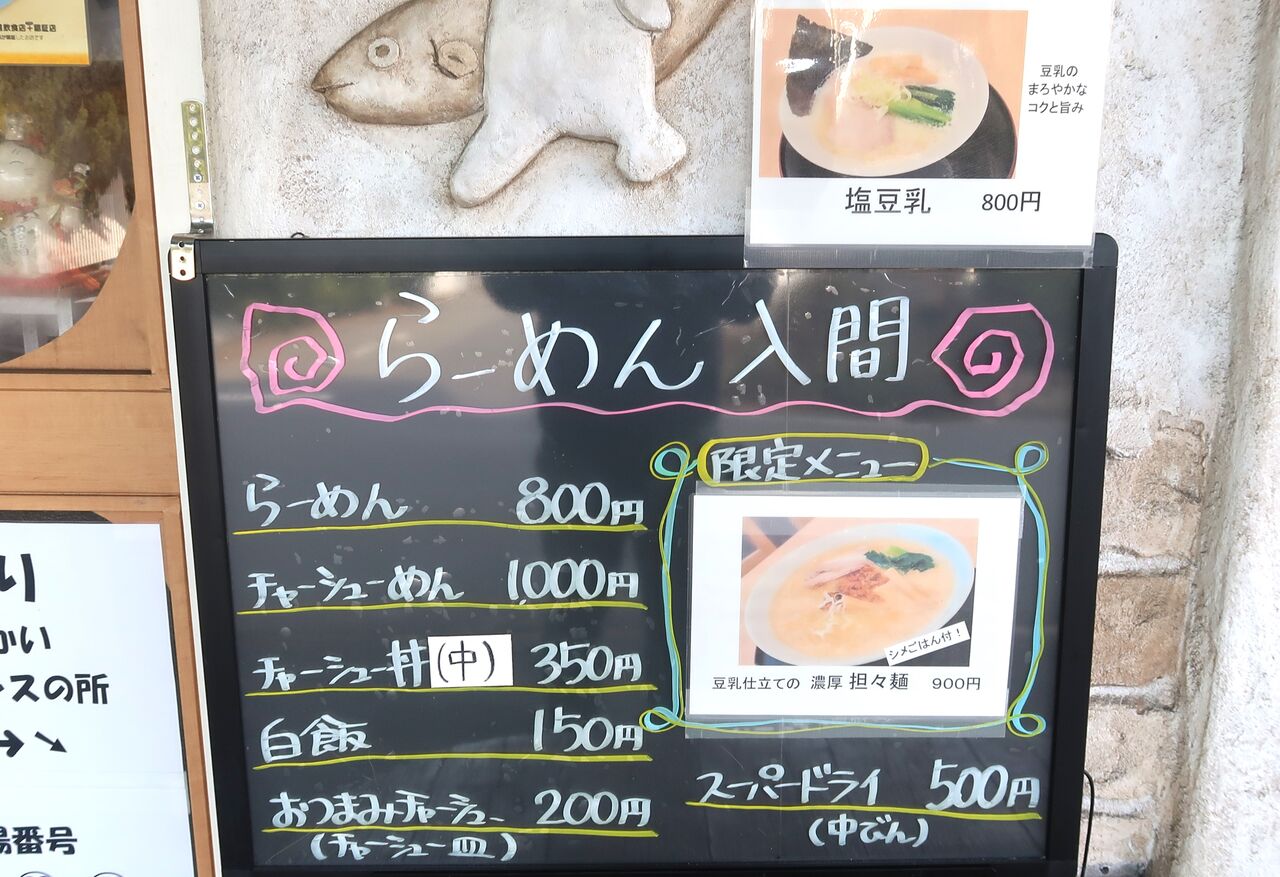 豆乳の
まろやかな
コクと旨み
塩豆乳 800円
らーめん 入間
らーめん 800円
チャーシューめん 1,000円
チャーシュー丼(中) 350円
白飯 150円
おつまみチャーシュー 200円
(チャーシュー皿)
限定メニュー
シメごはん付！
豆乳仕立ての 濃厚 担々麺 900円
スーパードライ 500円
(中びん)
り
かい
スの所
→↘
場番号